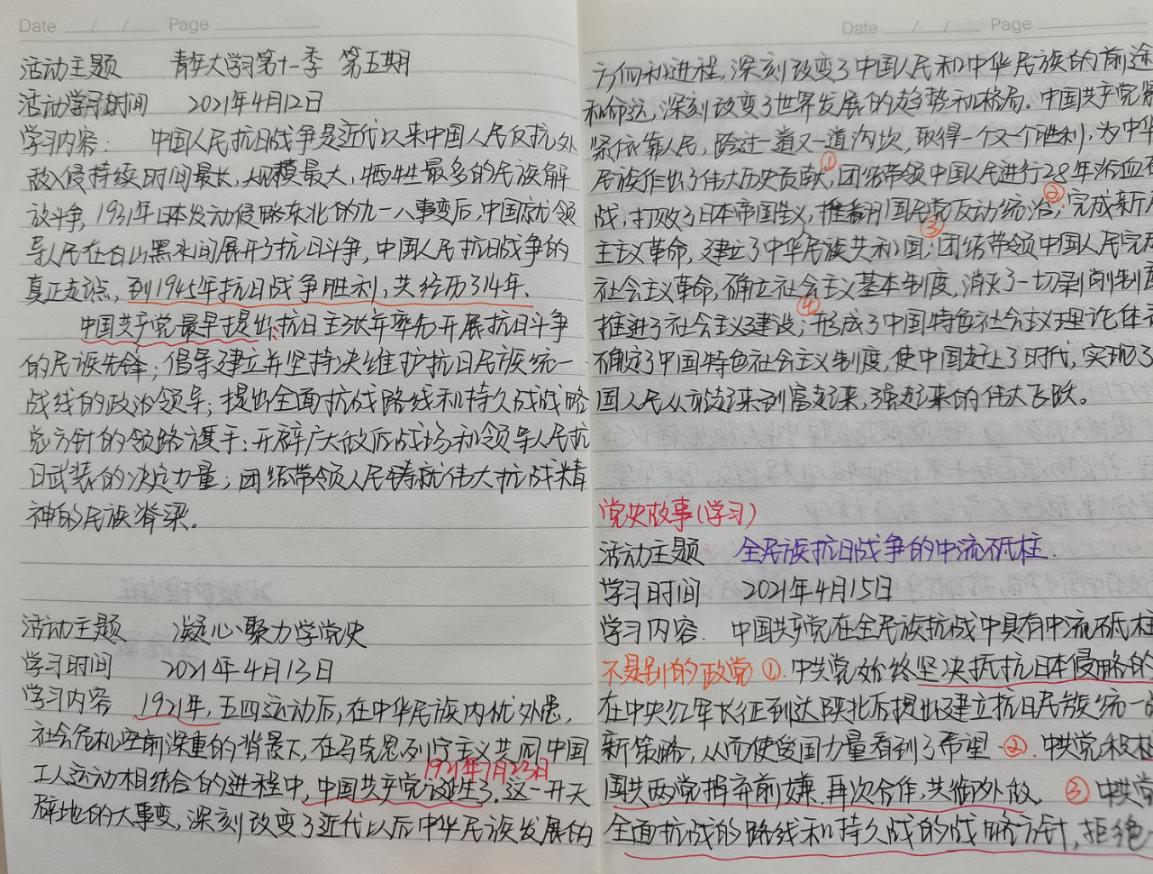 Date / / Page
活动主题 青年大学习第十季 第五期
活动学习时间 2021年4月12日
学习内容: 中国人民抗日战争是近代以来中国人民反抗外
敌入侵持续时间最长,规模最大,牺牲最多的民族解
放斗争,1931年日本发动侵略东北的九一八事变后,中国就领
导人民在白山黑水间展开了抗日斗争,中国人民抗日战争的
真正起点,到1945年抗日战争胜利,共经历了14年.
中国共产党最早提出抗日主张并率先开展抗日斗争
的民族先锋;倡导建立并坚持决维护抗日民族统一
战线的政治领导;提出全面抗战路线和持久战战略
总方针的领路旗手;开辟广大敌后战场和领导人民抗
日武装的决定力量;团结带领人民铸就伟大抗战精
神的民族脊梁.
活动主题 凝心聚力学党史
学习时间 2021年4月13日
学习内容 1921年,五四运动后,在中华民族内忧外患,
社会危机空前深重的背景下,在马克思列宁主义共同中国
1921年7月23日
工人运动相结合的进程中,中国共产党诞生了.这一开天
辟地的大事变,深刻改变了近代以后中华民族发展的
Date / / Page
方向和进程,深刻改变了中国人民和中华民族的前途
和命运,深刻改变了世界发展的趋势和格局.中国共产党紧
紧依靠人民,跨过一道又一道沟坎,取得一个又一个胜利,为中华
民族作出了伟大历史贡献,①团结带领中国人民进行28年浴血
战,打败了日本帝国主义,推翻国民党反动统治,②完成新
主主义革命,建立了中华民族共和国;③团结带领中国人民完
社会主义革命,确立社会主义基本制度,消灭了一切剥削制度
推进了社会主义建设;④形成了中国特色社会主义理论体
确定了中国特色社会主义制度,使中国赶上了时代,实现了
国人民从站起来到富起来,强起来的伟大飞跃.
党史故事(学习)
活动主题 全民族抗日战争的中流砥柱.
学习时间 2021年4月15日
学习内容. 中国共产党在全民族抗战中具有中流砥柱
不是别的政党 ①.中共党始终坚决抵抗日本侵略的
在中央红军长征到达陕北后提出建立抗日民族统一
新策略,从而使爱国力量看到了希望 ②.中共党积
国共两党摒弃前嫌.再次合作,共御外敌. ③ 中共党
全面抗战的路线和持久战的战略方针,拒绝